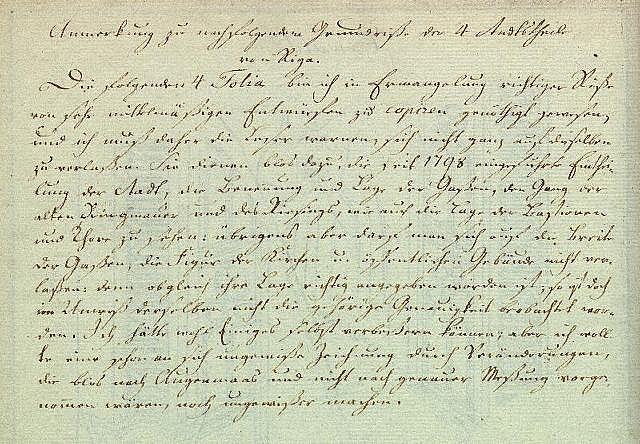 Anmerkung zu nachfolgendem Grundriße der 4 Stadtstheile
von Riga.
Die folgenden 4 Folia bin ich in Ermangelung richtiger Riße
von sehr mittelmäßigen Entwürfen zu copiren genöthigt gewesen,
und ich muß daher die Leser warnen, sich nicht ganz auf dieselben
zu verlassen. Sie dienen blos dazu, die seit 1798 eingeführte Einthei-
lung der Stadt, die Benennung und Lage der Gaßen, den Gang der
alten Ringmauer und des Riesings, wie auch die Lage der Bastionen
und Thore zu sehen: übrigens aber darf man sich auf die Breite
der Gaßen, die Figur der Kirchen u: öffentlichen Gebäude nicht ver-
laßen: denn obgleich ihre Lage richtig angegeben worden ist; so ist doch
im Umriß derselben nicht die gehörige Genauigkeit beobachtet wor-
den. Ich hätte wohl Einiges selbst verbeßern können; aber ich woll-
te eine schon an sich ungewiße Zeichnung durch Veränderungen,
die blos nach Augenmaas und nicht nach genauer Meßung vorge-
nommen wären, noch ungewißer machen.